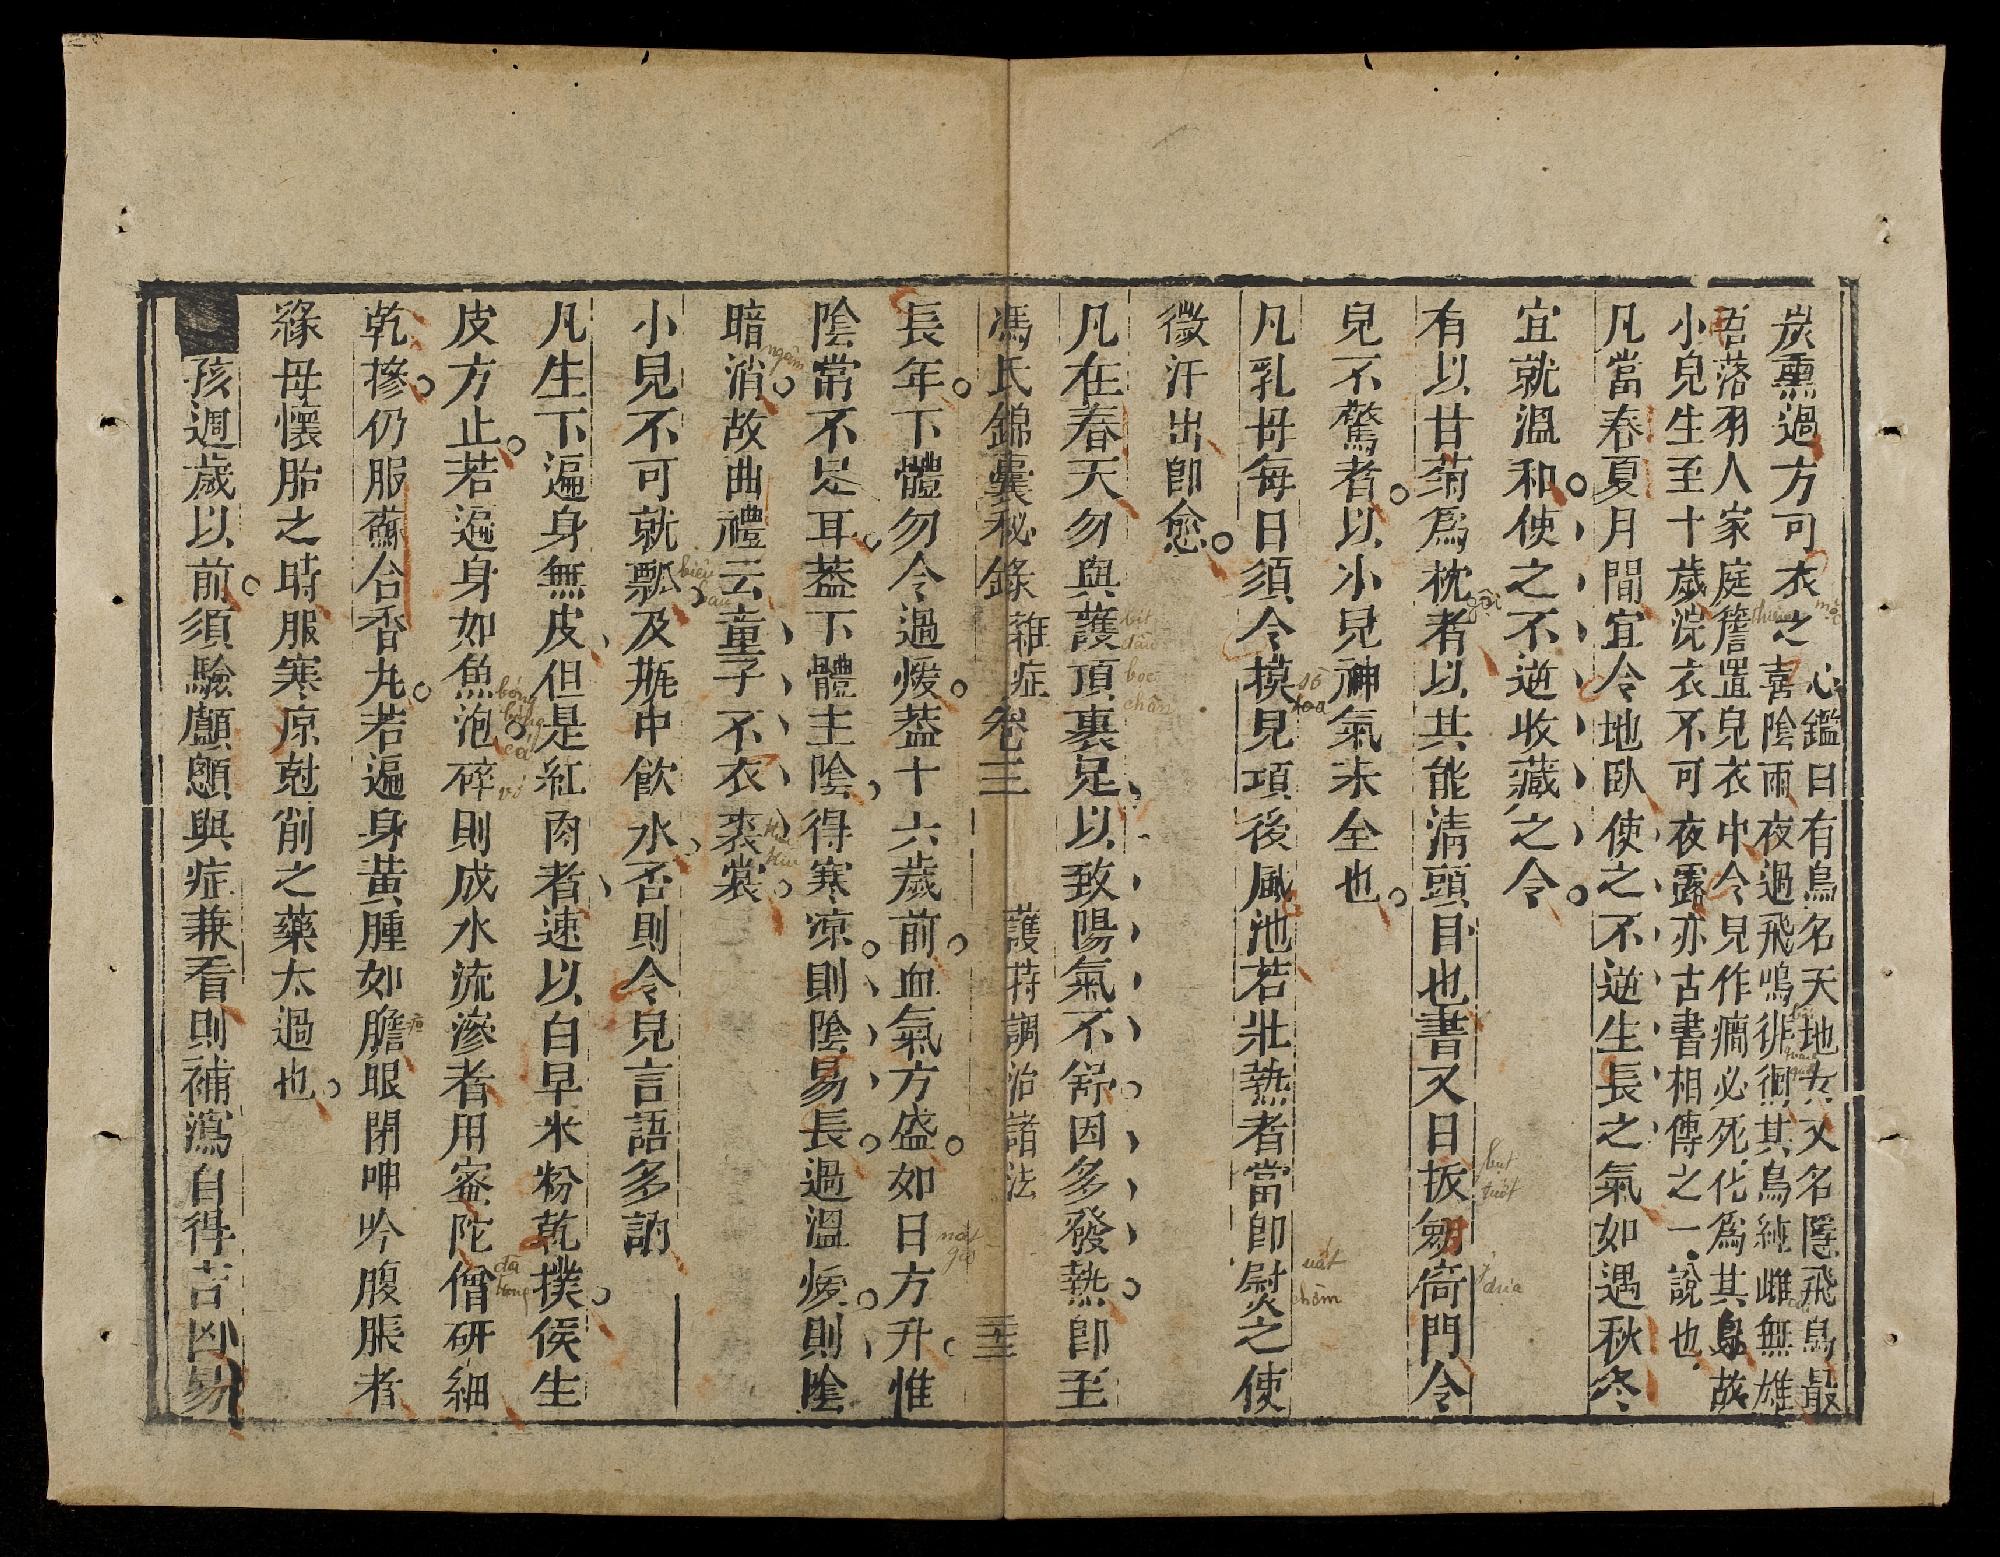 炭熏過方可衣之
心鑑曰有鳥名天地女又名隱飛鳥最
喜陰雨夜過飛鳴徘徊其鳥純雌無雄
吾落羽人家庭簷置兒衣中令兒作癇必死化爲其鳥故
小兒生至十歲浣衣不可夜露亦古書相傳之一說也
凡當春夏月間宜令地臥使之不逆生長之氣如遇秋冬
宜就溫和使之不逆收藏之令
有以甘菊爲枕者以其能淸頭目也書又曰扳劒倚門令
兒不驚者以小兒神氣未全也
凡乳母每日須令摸兒項後風池若壯熱者當卽熨之使
微汗出卽愈
凡在春天勿與護頂裹足以致陽氣不舒因多發熱卽至
馮氏錦囊秘錄 雜症 卷三 護持調治諸法 三三
長年下體勿令過煖蓋十六歲前血氣方盛如日方升惟
陰常不足耳蓋下體主陰得寒凉則陰易長過溫煖則陰
暗消故曲禮云童子不衣裘裳
小兒不可就瓢及甁中飮水否則令兒言語多訥
凡生下遍身無皮但是紅肉者速以白早米粉乾撲候生
皮方止若遍身如魚泡碎則成水流滲者用蜜陀僧研細
乾摻仍服蘇合香丸若遍身黃腫如膽眼閉呻吟腹脹者
緣母懷胎之時服寒凉尅削之藥太過也
孩週歲以前須驗顱顖與症兼看則補瀉自得吉凶易
ngầm
biều
bầu
bịt
đầu
bọc
chân
gối
sờ
toa
bạt
tuốt
ỷ
dựa
uất
chờm
bóng
bóng
cá
vỡ
đà
tăng